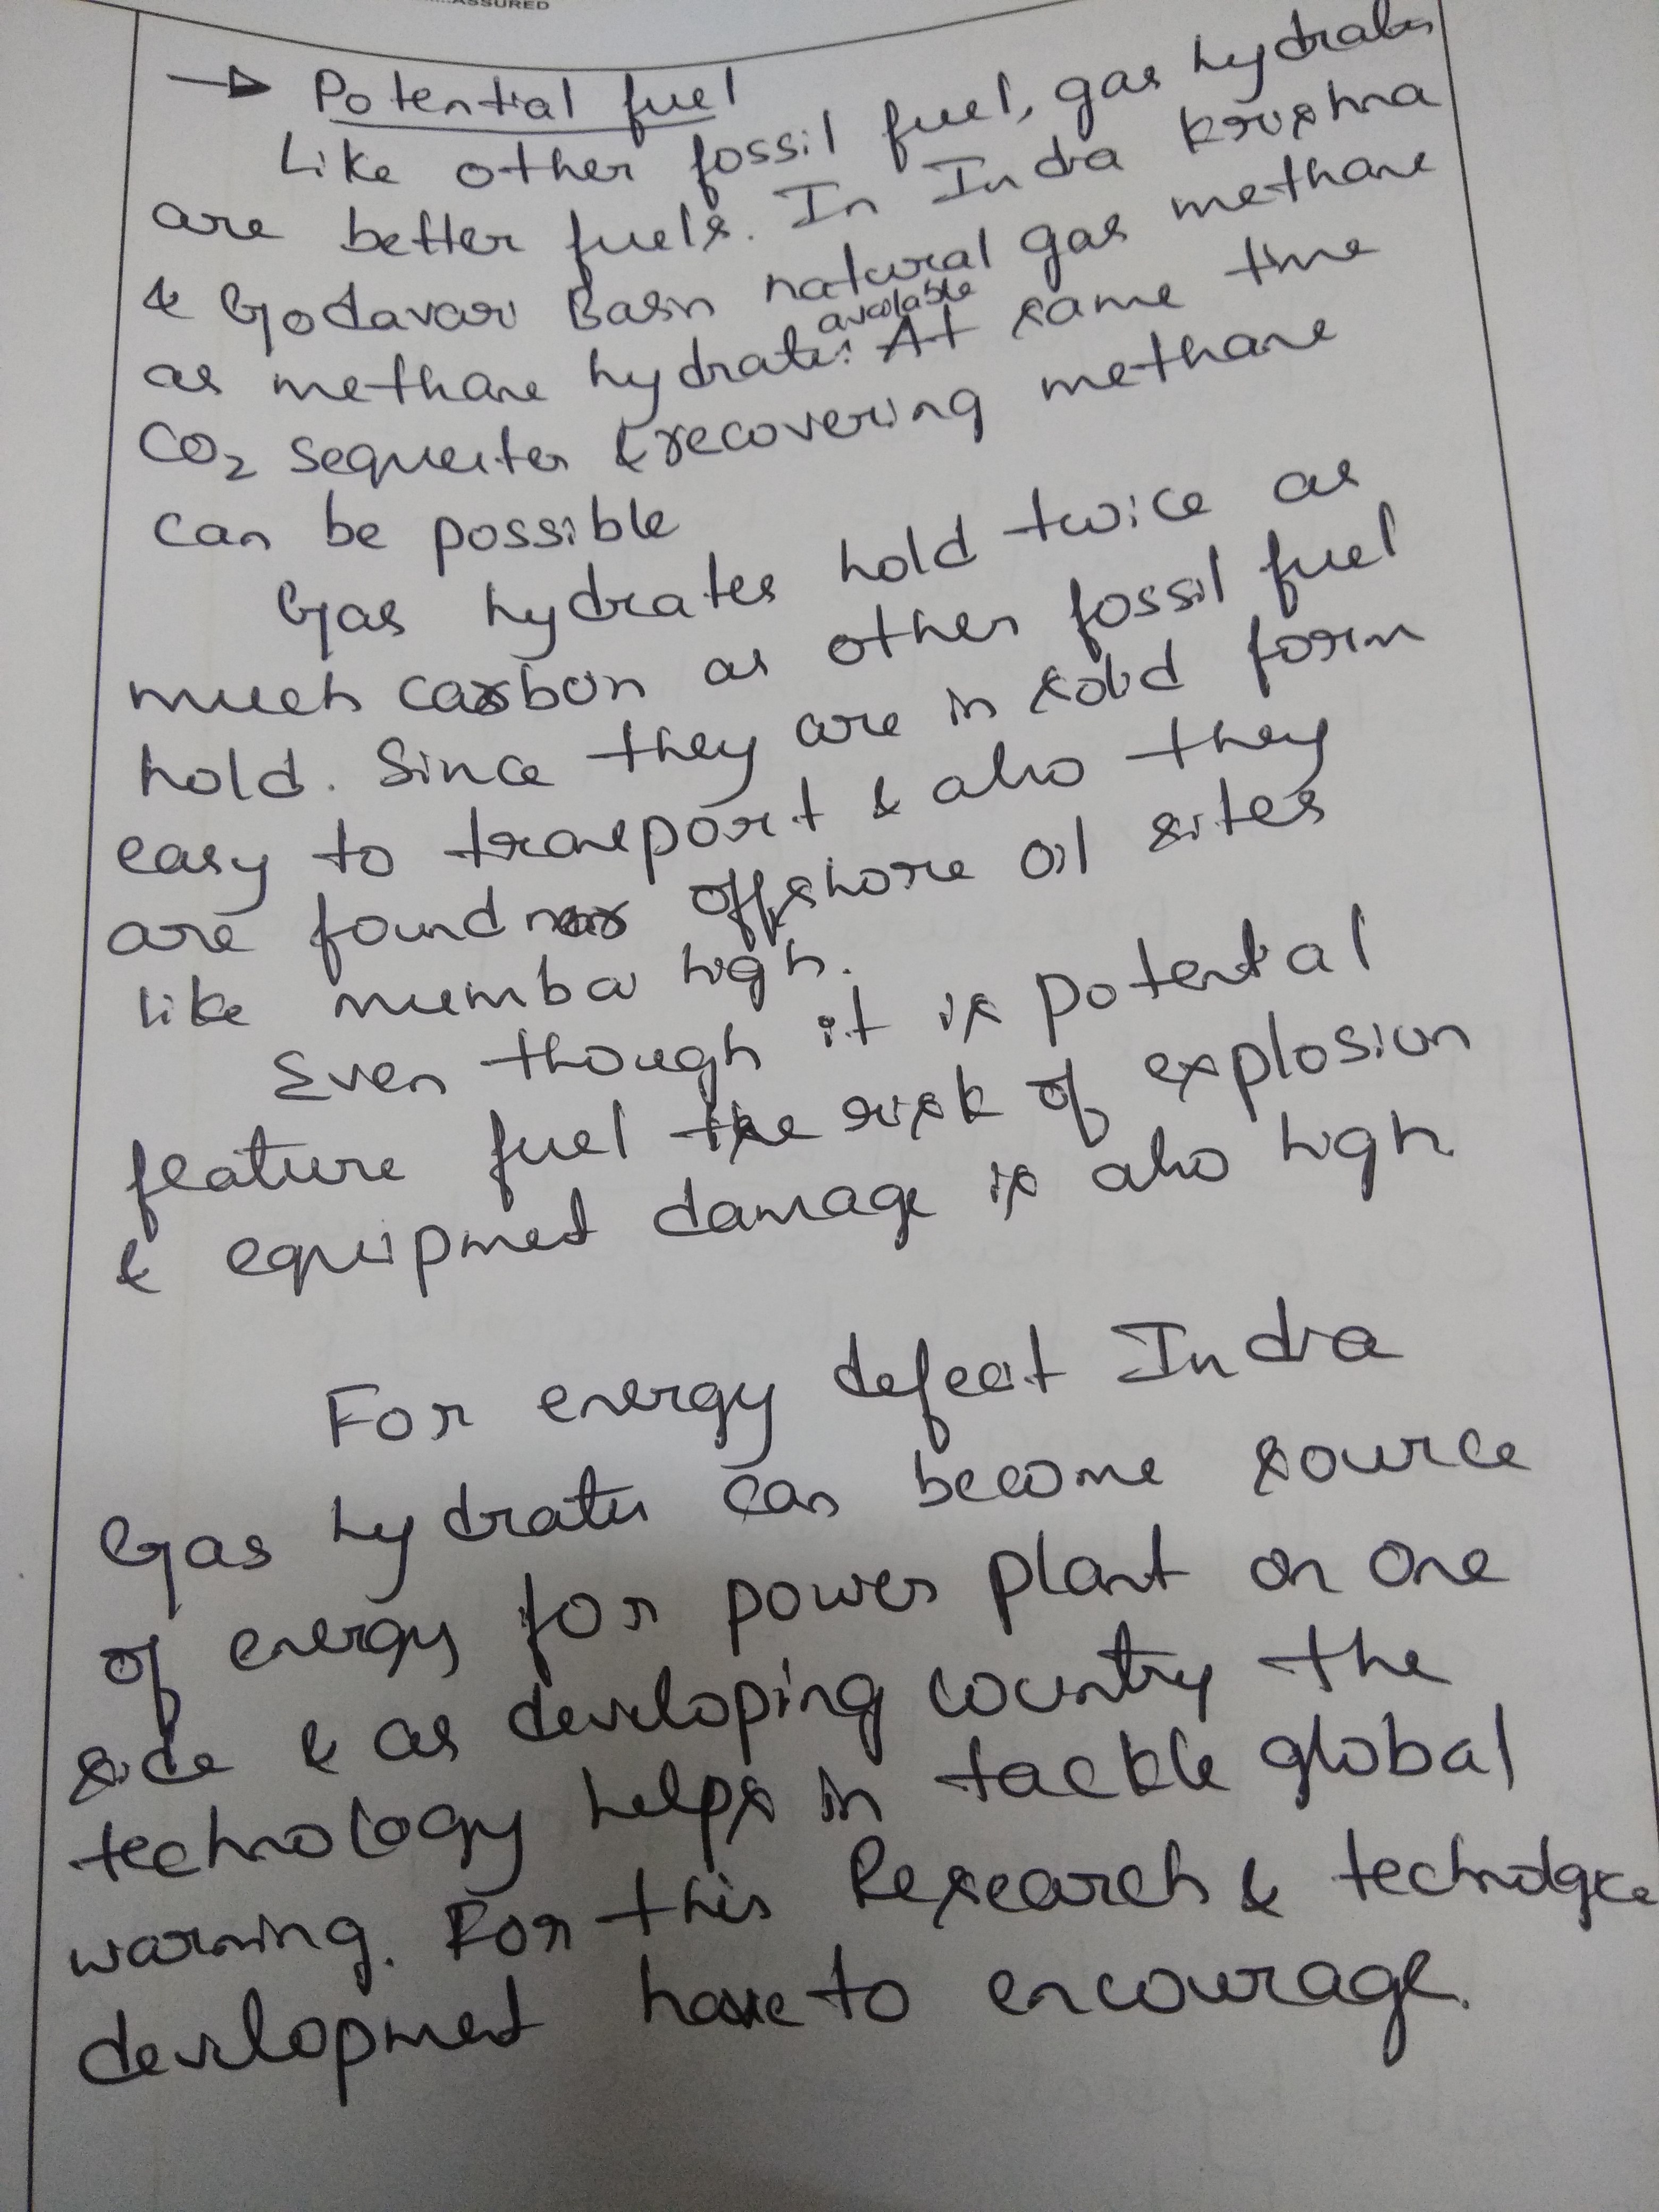 ASSURED
→ Potential fuel
Like other fossil fuel, gas hydrates
are better fuels. In India Krushna
& Godavari Basin natural gas methane
as methane hydrates available. At same time
CO₂ sequester & recovering methane
can be possible
Gas hydrates hold twice as
much carbon as other fossil fuel
hold. Since they are in solid form
easy to transport & also they
are found near offshore oil sites
like mumbai high.
Even though it is potential
feature fuel the risk of explosion
& equipment damage is also high.
For energy defeat India
Gas hydrates can become source
of energy for power plant on one
side & as developing country the
technology helps in tackle global
warming. For this Research &
development have to encourage.